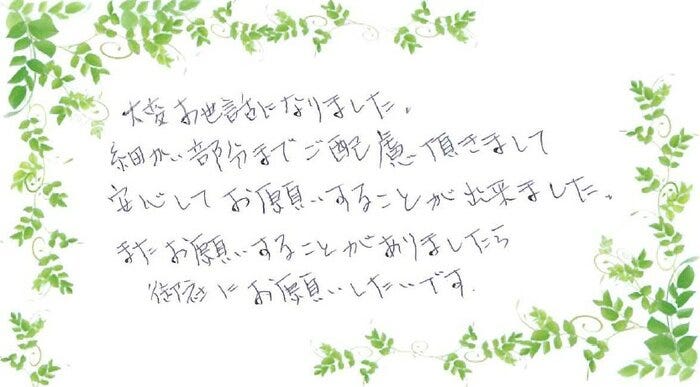 大変お世話になりました。
細かい部分までご配慮頂きまして
安心してお願いすることが出来ました。
またお願いすることがありましたら
御社にお願いしたいです.